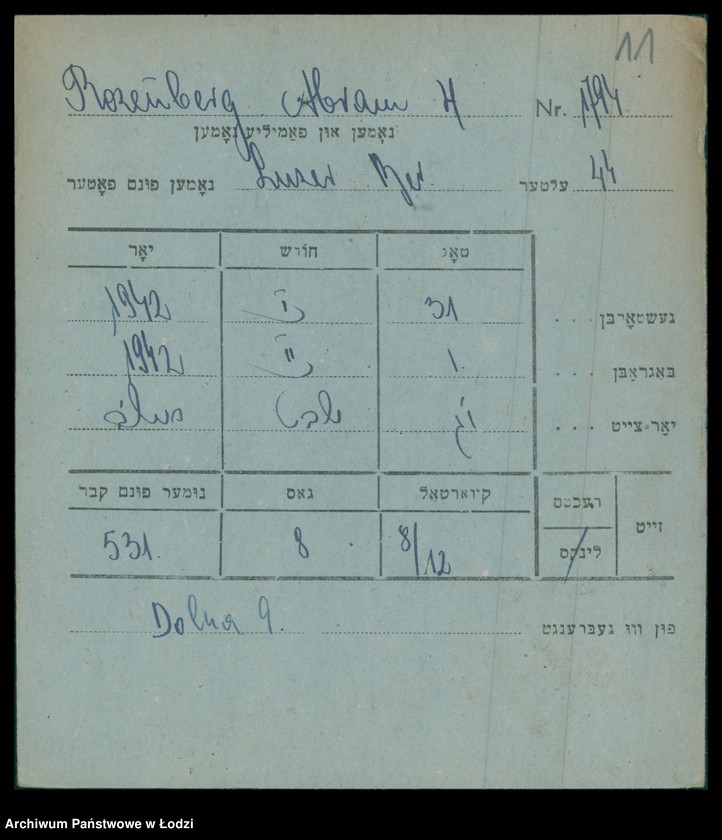 11
Rozenberg Abram H Nr. 1794
נאָמען און פאַמיליע־נאָמען
נאָמען פונם פאָטער Luzer Ber עלטער 44
טאָג חודש יאָר
געשטאָרבן . . . 31 I 1942
באַגראַבן . . . 1 II 1942
יאָר־צייט . . . י"ג שבט
זייט רעכטס קוואַרטאַל גאַס נומער פונם קבר
לינקס / 8/12 8 531.
פון וווּ געברענגט Dolna 9.
Archiwum Państwowe w Łodzi